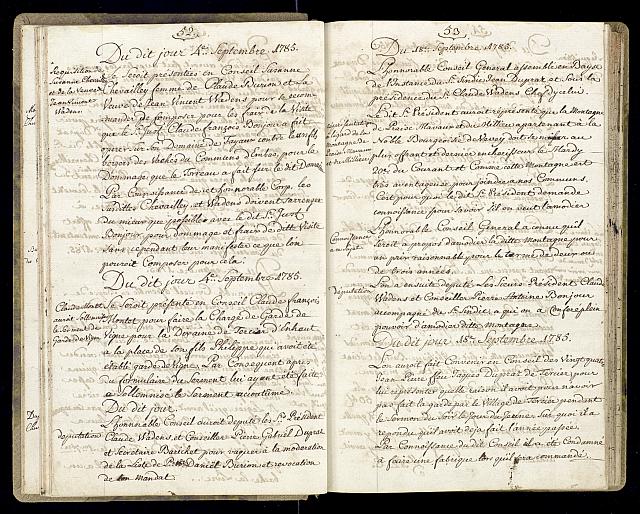 52
Du dit jour 4e. Septembre 1785.
Requisition de
Susanne Chevalley
et de la Veuve
Jean Vincent
Wadens
Se seroit présentées en Conseil Susanne
Chevalley femme de Claude Burion et la
Veuve de Jean Vincent Wadens pour se recom-
mander de composer pour les frais de la Visite
que le Sr. Just. Claude François Bonjour a fait
opérer sur son Domaine de Fayaux contre les
bergers des Vaches du Communs d'Enbas, pour le
Dommage que le Torreau a fait sur le dit Domaine
Par Connoissance de cet honnorable Corp. les
Susdittes Chevalley et Wadens doivent s'arrenger
du mieux que possibles avec le dit Sr. Just.
Bonjour pour dommage et fraix de ditte Visite
Sans cependant leur manifester ce que l'on
pouroit Composer pour cela.
Du dit jour 4e. Septembre 1785.
Claude Montet
auroit Sollonisé
le Serment de
Garde de Vigne
Se Seroit présenté en Conseil Claude françois
Montet pour faire la Charge de Garde de
Vigne pour la Dixaine de Tercier d'Enhaut
a la place de son fils Philippe qui avoit été
établi garde de Vigne. Par Consequent apres
du formulaire du Serment lui ayant été faite
a Sollonnisé le Serment accoutumé.
Du dit jour.
députation
L'honnorable Conseil auroit deputé les Srs. Président
Claude Wadens et Conseiller Pierre Gabriel Duprat
et Secretaire Barichet pour vaquer a la moderation
de la Liste de Daniel Burion et revocation
de son mandat
53
Du 18e. Septembre 1785.
L'honnorable Conseil General assemblé en Bayse
de l'instance du Sr. Sindic Jean Duprat et Sous la
présidence du Sr. Claude Wadens Chef d'y celui.
a l'égard de la
montagne de
Praix de Manaux
et du Millieu
Le dit Sr. Président auroit représenté que la Montagne
de Praix de Manaux et du Millieu appartenant a la
Noble Bourgeoisie de Vevey doit se miser au
plus offrant et dernier encherisseur le Mardy
20e. du Courant et Comme cette Montagne est
très avantageuse pour joindre a nos Communs.
C'est pourquoi le dit Sr. Président demande
connoissance pour Savoir s'il on veut l'amodier
Connoissance
au Sujet
L'honnorable Conseil General a connu qu'il
Seroit a propos d'amodier la ditte Montagne pour
un prix raisonnable pour le terme de deux ou
de trois années.
députation
L'on a ensuite deputé Les Sieurs Président Claude
Wadens et Conseiller Pierre Antoine Bonjour
accompagné du Sr. Sindic a qui on a Conferé plein
pouvoir d'amodier ditte montagne
Du dit jour 18e. Septembre 1785.
L'on auroit fait Convenir en Conseil des Vingt quatre
Jean Pierre ffeu Jaques Duprat de Tercier pour
lui représenter quelle raison il avoit pour n'avoir
pas fait la garde par le Village de Tercier pendant
le Sermon du Soir le Jour du Jeûne Sur quoi il a
repondu qu'il avoit déja fait l'année passée.
Par Connoissance du dit Conseil il a été Condamné
a faire une fabrique lors qu'il sera commandé.